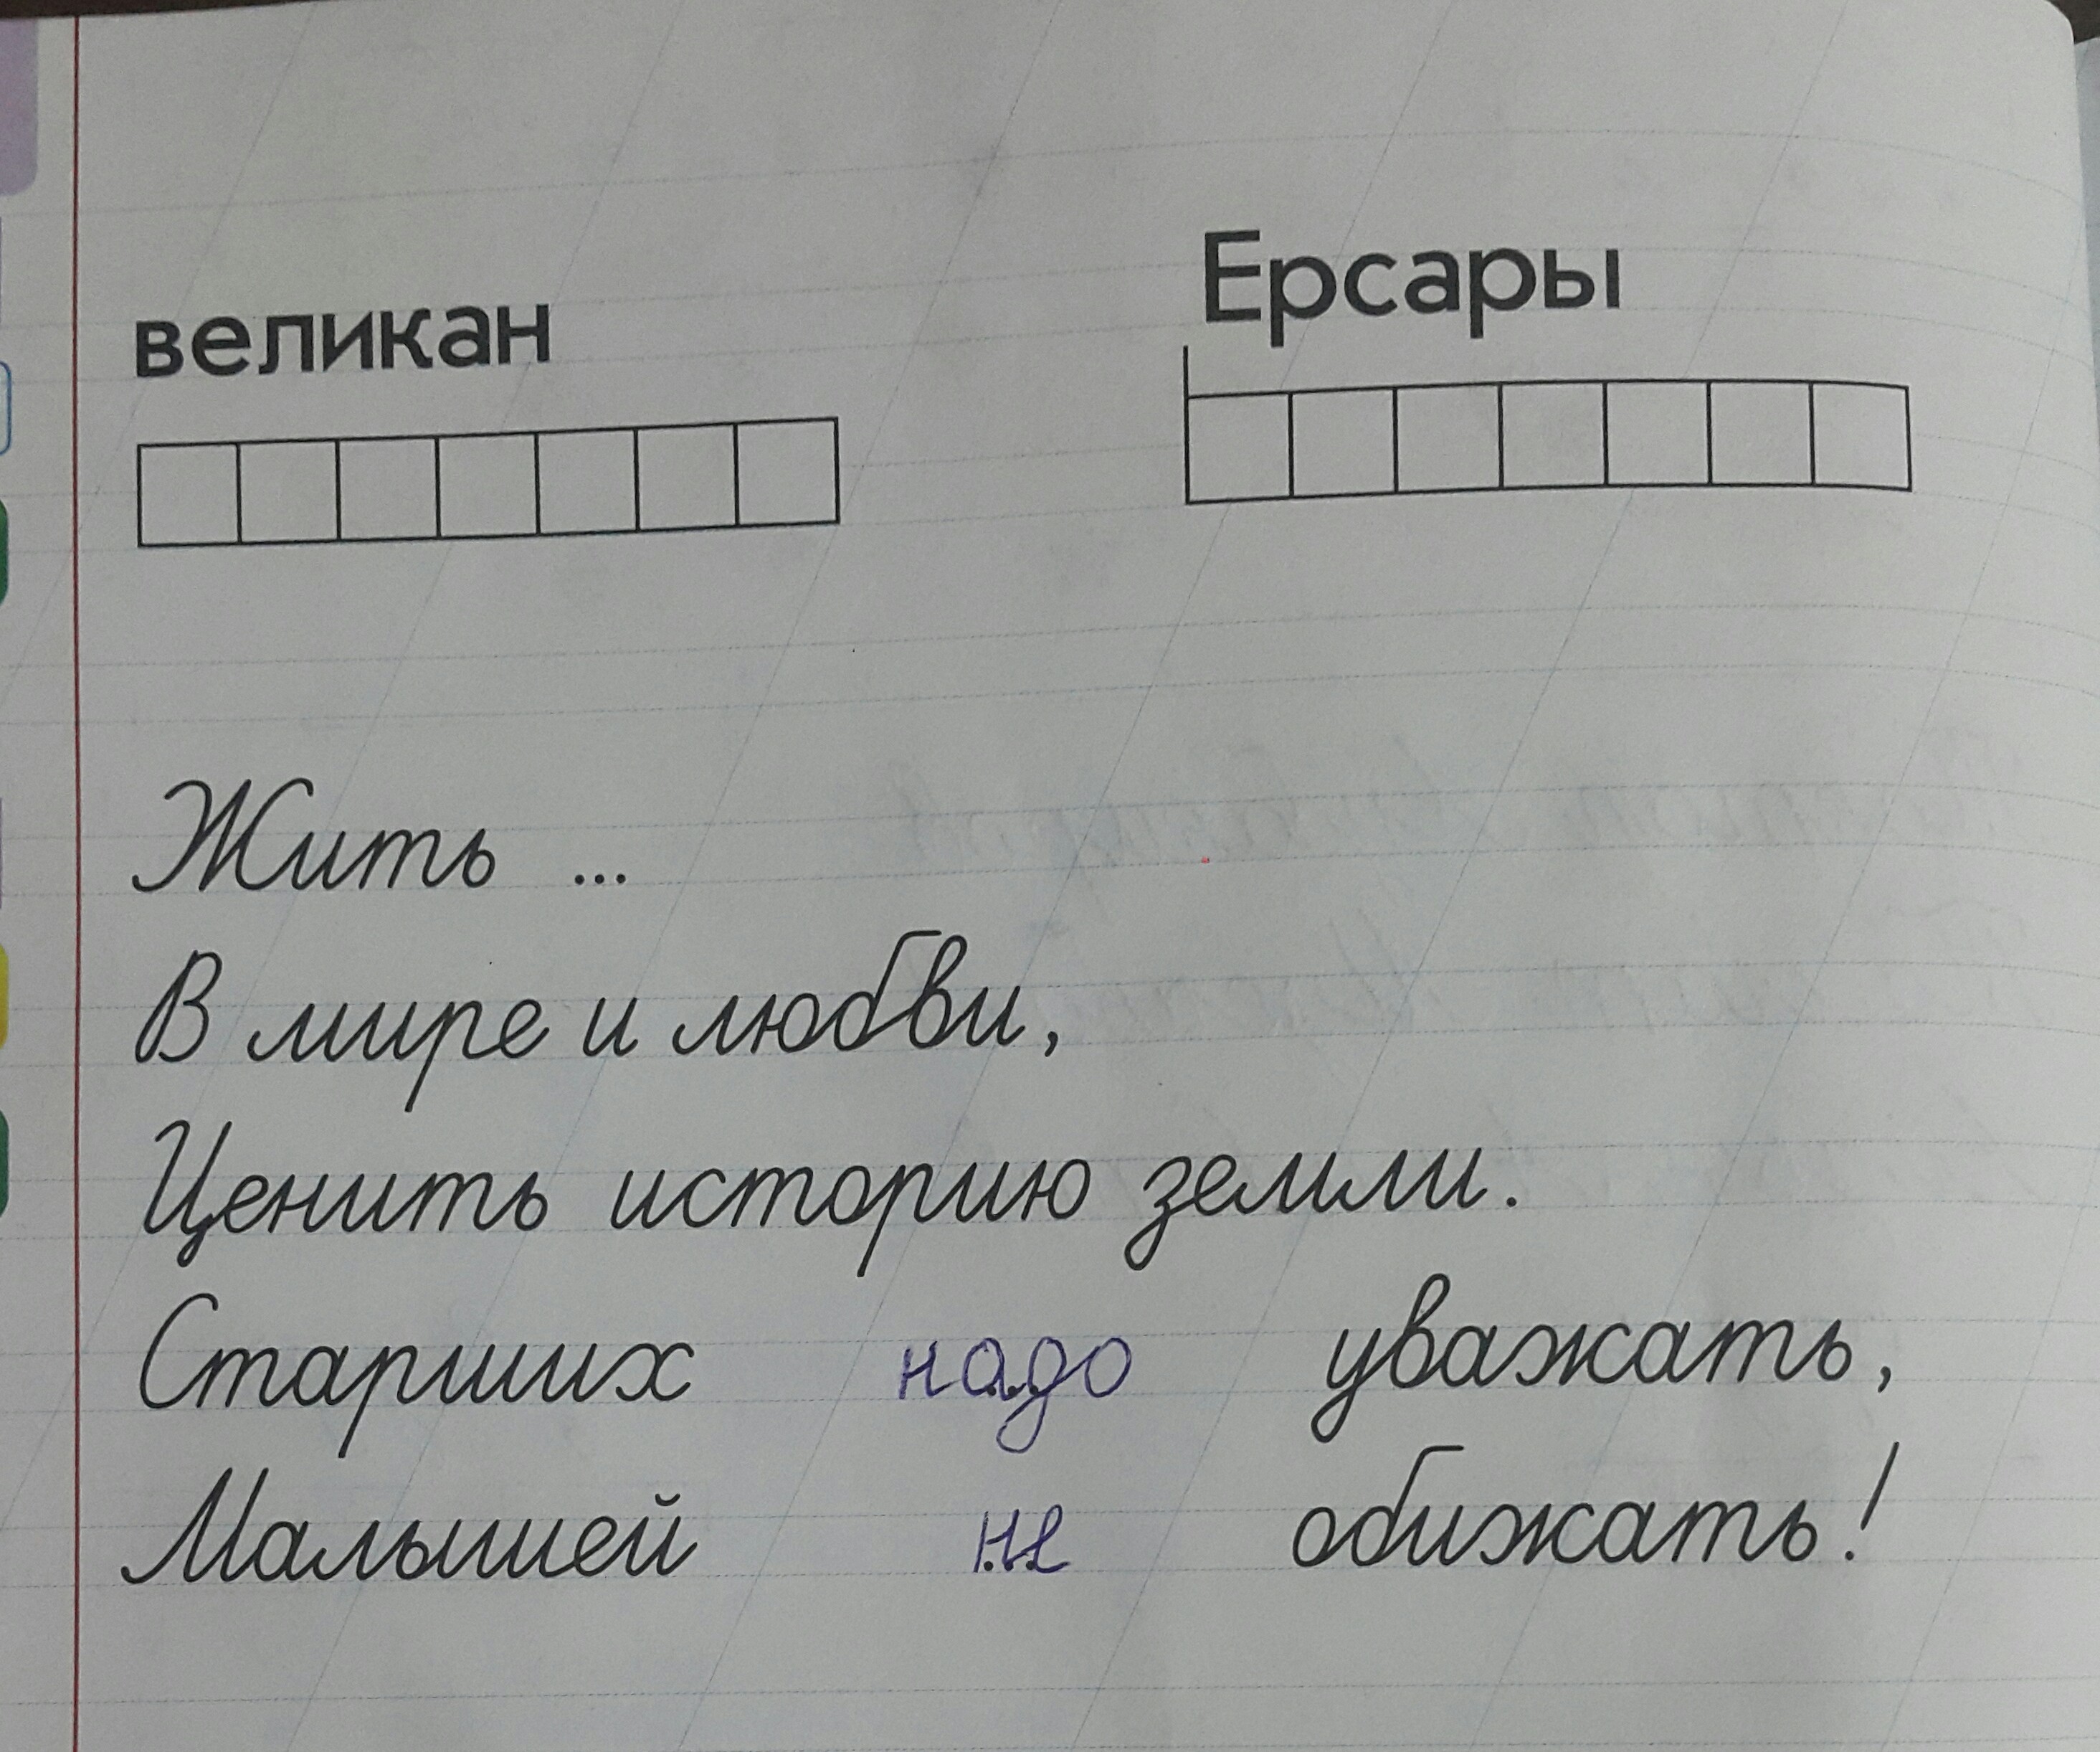 великан
Ерсары
Жить ...
В мире и любви,
Ценить историю земли.
Старших надо уважать,
Малышей не обижать!